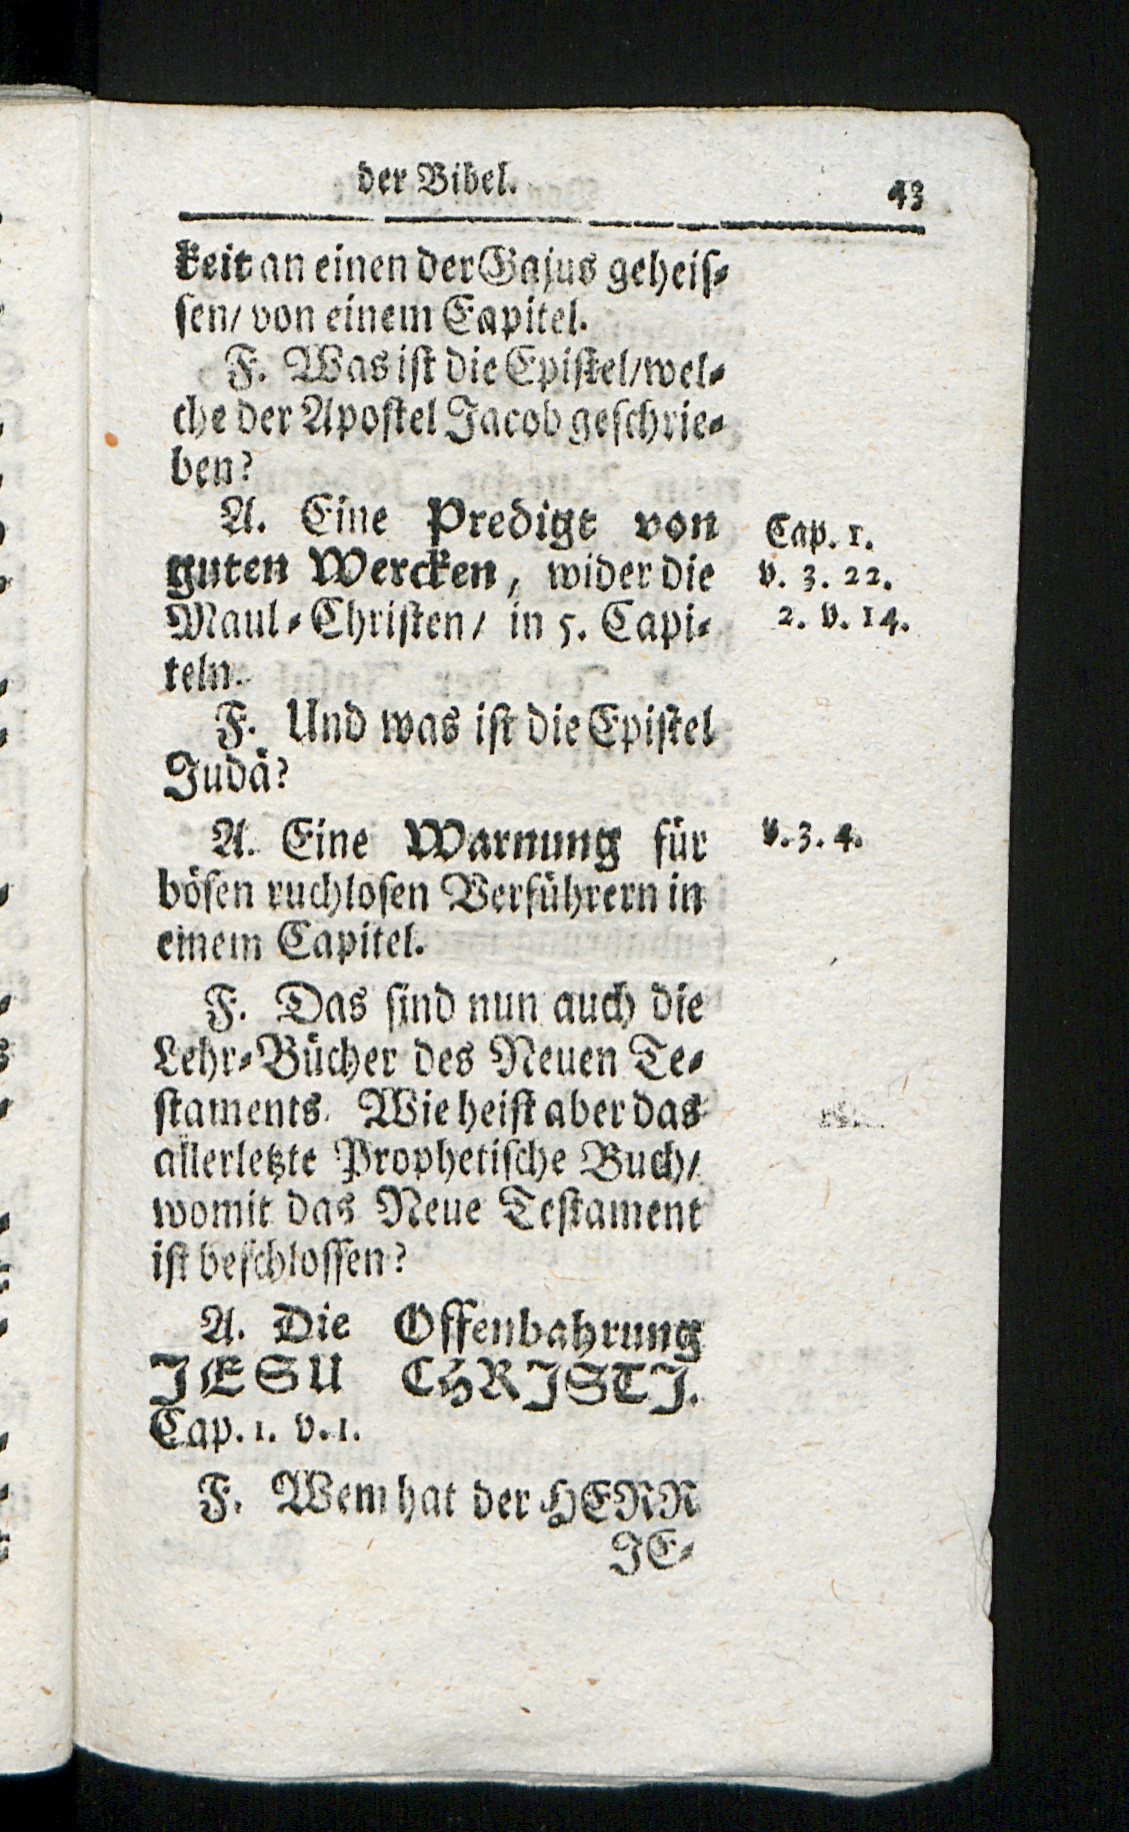 der Bibel. 43
keit an einen der Gajus geheis-
sen/ von einem Capitel.
F. Was ist die Epistel/ wel-
che der Apostel Jacob geschrie-
ben?
A. Eine Predigt von
guten Wercken, wider die
Maul-Christen/ in 5. Capi-
teln.
Cap. 1.
v. 3. 22.
2. v. 14.
F. Und was ist die Epistel
Judä?
A. Eine Warnung für
bösen ruchlosen Verführern in
einem Capitel.
v. 3. 4.
F. Das sind nun auch die
Lehr-Bücher des Neuen Te-
staments. Wie heist aber das
allerletzte Prophetische Buch/
womit das Neue Testament
ist beschlossen?
A. Die Offenbahrung
JESU CHRISTJ.
Cap. 1. v. 1.
F. Wem hat der HERR
JE-